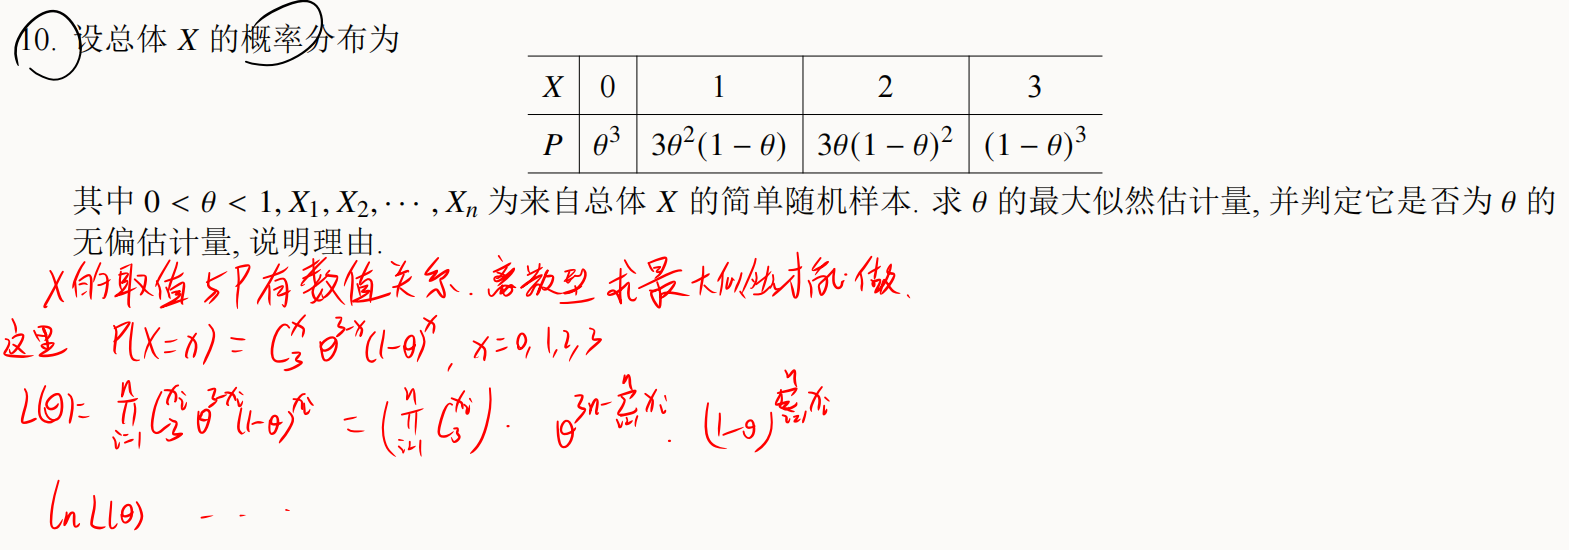 10. 设总体 X 的概率分布为
X 0 1 2 3
P θ³ 3θ²(1 − θ) 3θ(1 − θ)² (1 − θ)³
其中 0 < θ < 1, X₁, X₂, ⋯ , Xₙ 为来自总体 X 的简单随机样本. 求 θ 的最大似然估计量, 并判定它是否为 θ 的
无偏估计量, 说明理由.
X的取值与P有数值关系. 离散型求最大似然才能做.
这里 P(X=x) = C₃ˣ θ³⁻ˣ(1-θ)ˣ, x=0,1,2,3
L(θ)= ∏_{i=1}^{n} C_3^{x_i} θ^{3-x_i}(1-θ)^{x_i} = (∏_{i=1}^{n} C_3^{x_i}) · θ^{3n-∑_{i=1}^{n} x_i} · (1-θ)^{∑_{i=1}^{n} x_i}
ln L(θ) - - - ·